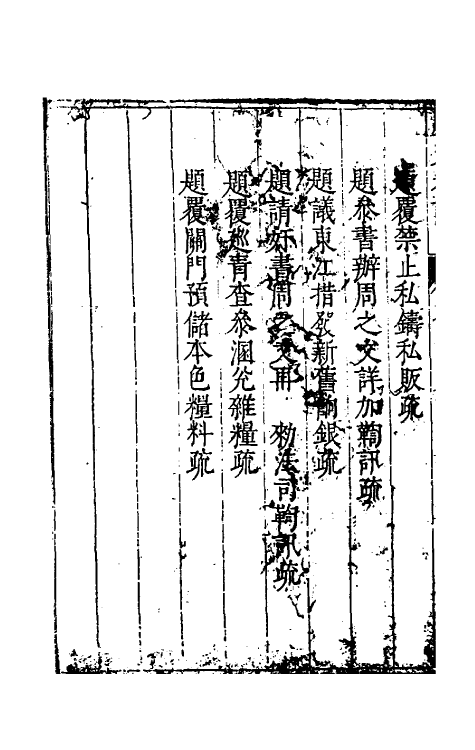 題覆禁止私鑄私販疏
題叅書辦周之文詳加鞫訊疏
題議東江措發新舊餉銀疏
題請奸書周之文再 勑法司鞫訊疏
題覆巡青查叅溷兊雜糧疏
題覆關門預儲本色糧料疏